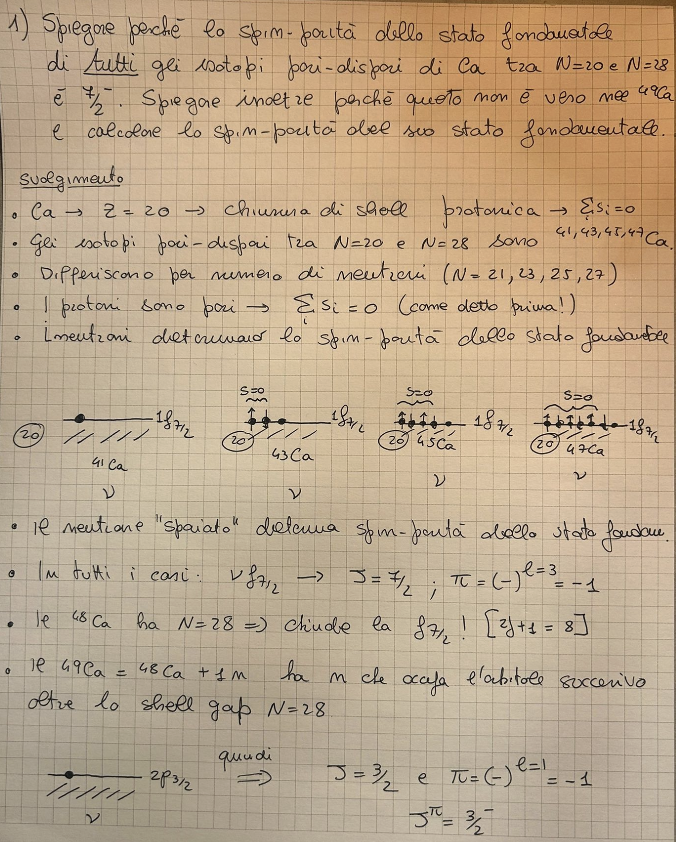 1) Spiegare perché lo spin-parità dello stato fondamentale
di tutti gli isotopi pari-dispari di Ca tra N=20 e N=28
è 7/2⁻. Spiegare inoltre perché questo non è vero nel ⁴⁹Ca
e calcolare lo spin-parità del suo stato fondamentale.
svolgimento
• Ca → Z = 20 → chiusura di shell protonica → Σᵢ sᵢ = 0
• Gli isotopi pari-dispari tra N=20 e N=28 sono ⁴¹,⁴³,⁴⁵,⁴⁷Ca.
• Differiscono per numero di neutroni (N = 21, 23, 25, 27)
• I protoni sono pari → Σᵢ sᵢ = 0 (come detto prima!)
• I neutroni determinano lo spin-parità dello stato fondamentale
S=0 S=0 S=0
20 1f₇/₂ 20 1f₇/₂ 20 1f₇/₂ 20 1f₇/₂
41Ca 43Ca 45Ca 47Ca
ν ν ν ν
• Il neutrone "spaiato" determina spin-parità dello stato fondam.
• In tutti i casi: νf₇/₂ → J = 7/2 ; π = (-)^l=3 = -1
• Il ⁴⁸Ca ha N=28 => chiude la f₇/₂ ! [2j+1 = 8]
• Il 49Ca = 48Ca + 1n ha n che occupa l'orbitale successivo
oltre lo shell gap N=28
2p₃/₂ quindi ⇒ J = 3/2 e π = (-)^l=1 = -1
ν
J^π = 3/2⁻